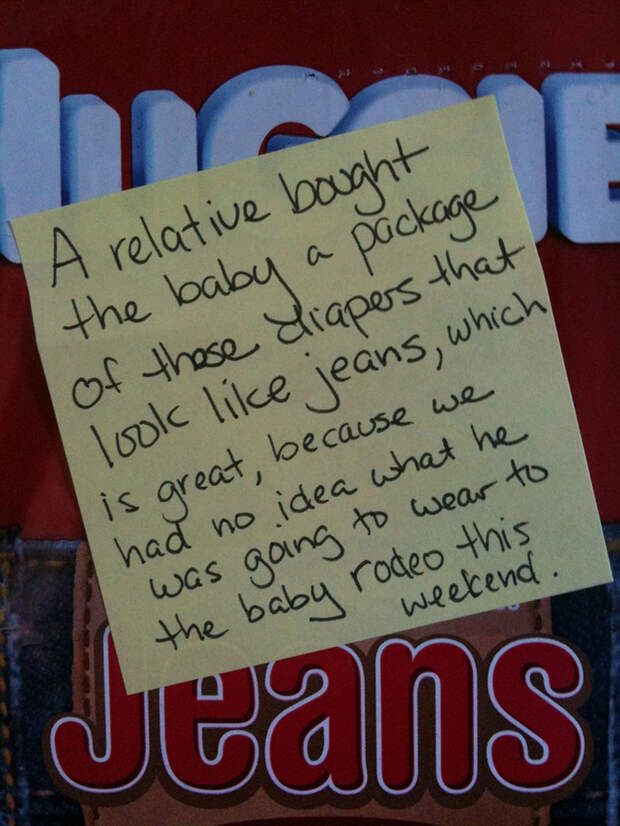 HUGGIE
A relative bought
the baby a package
of those diapers that
look like jeans, which
is great, because we
had no idea what he
was going to wear to
the baby rodeo this
weekend.
Jeans